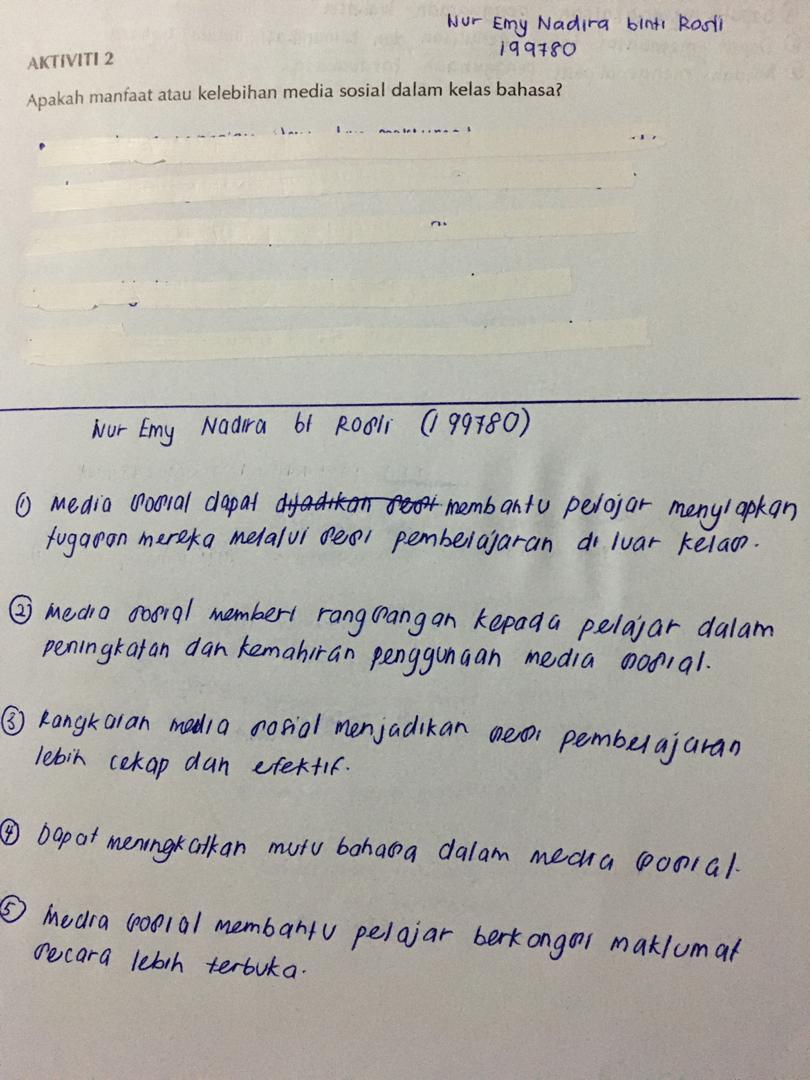 Nur Emy Nadira binti Rosli
199780
AKTIVITI 2
Apakah manfaat atau kelebihan media sosial dalam kelas bahasa?
Nur Emy Nadira bt Rosli (199780)
① Media sosial dapat dijadikan sesi membantu pelajar menyiapkan
tugasan mereka melalui sesi pembelajaran di luar kelas.
② Media sosial memberi rangsangan kepada pelajar dalam
peningkatan dan kemahiran penggunaan media sosial.
③ Rangkaian media sosial menjadikan sesi pembelajaran
lebih cekap dan efektif.
④ Dapat meningkatkan mutu bahasa dalam media sosial.
⑤ Media sosial membantu pelajar berkongsi maklumat
secara lebih terbuka.